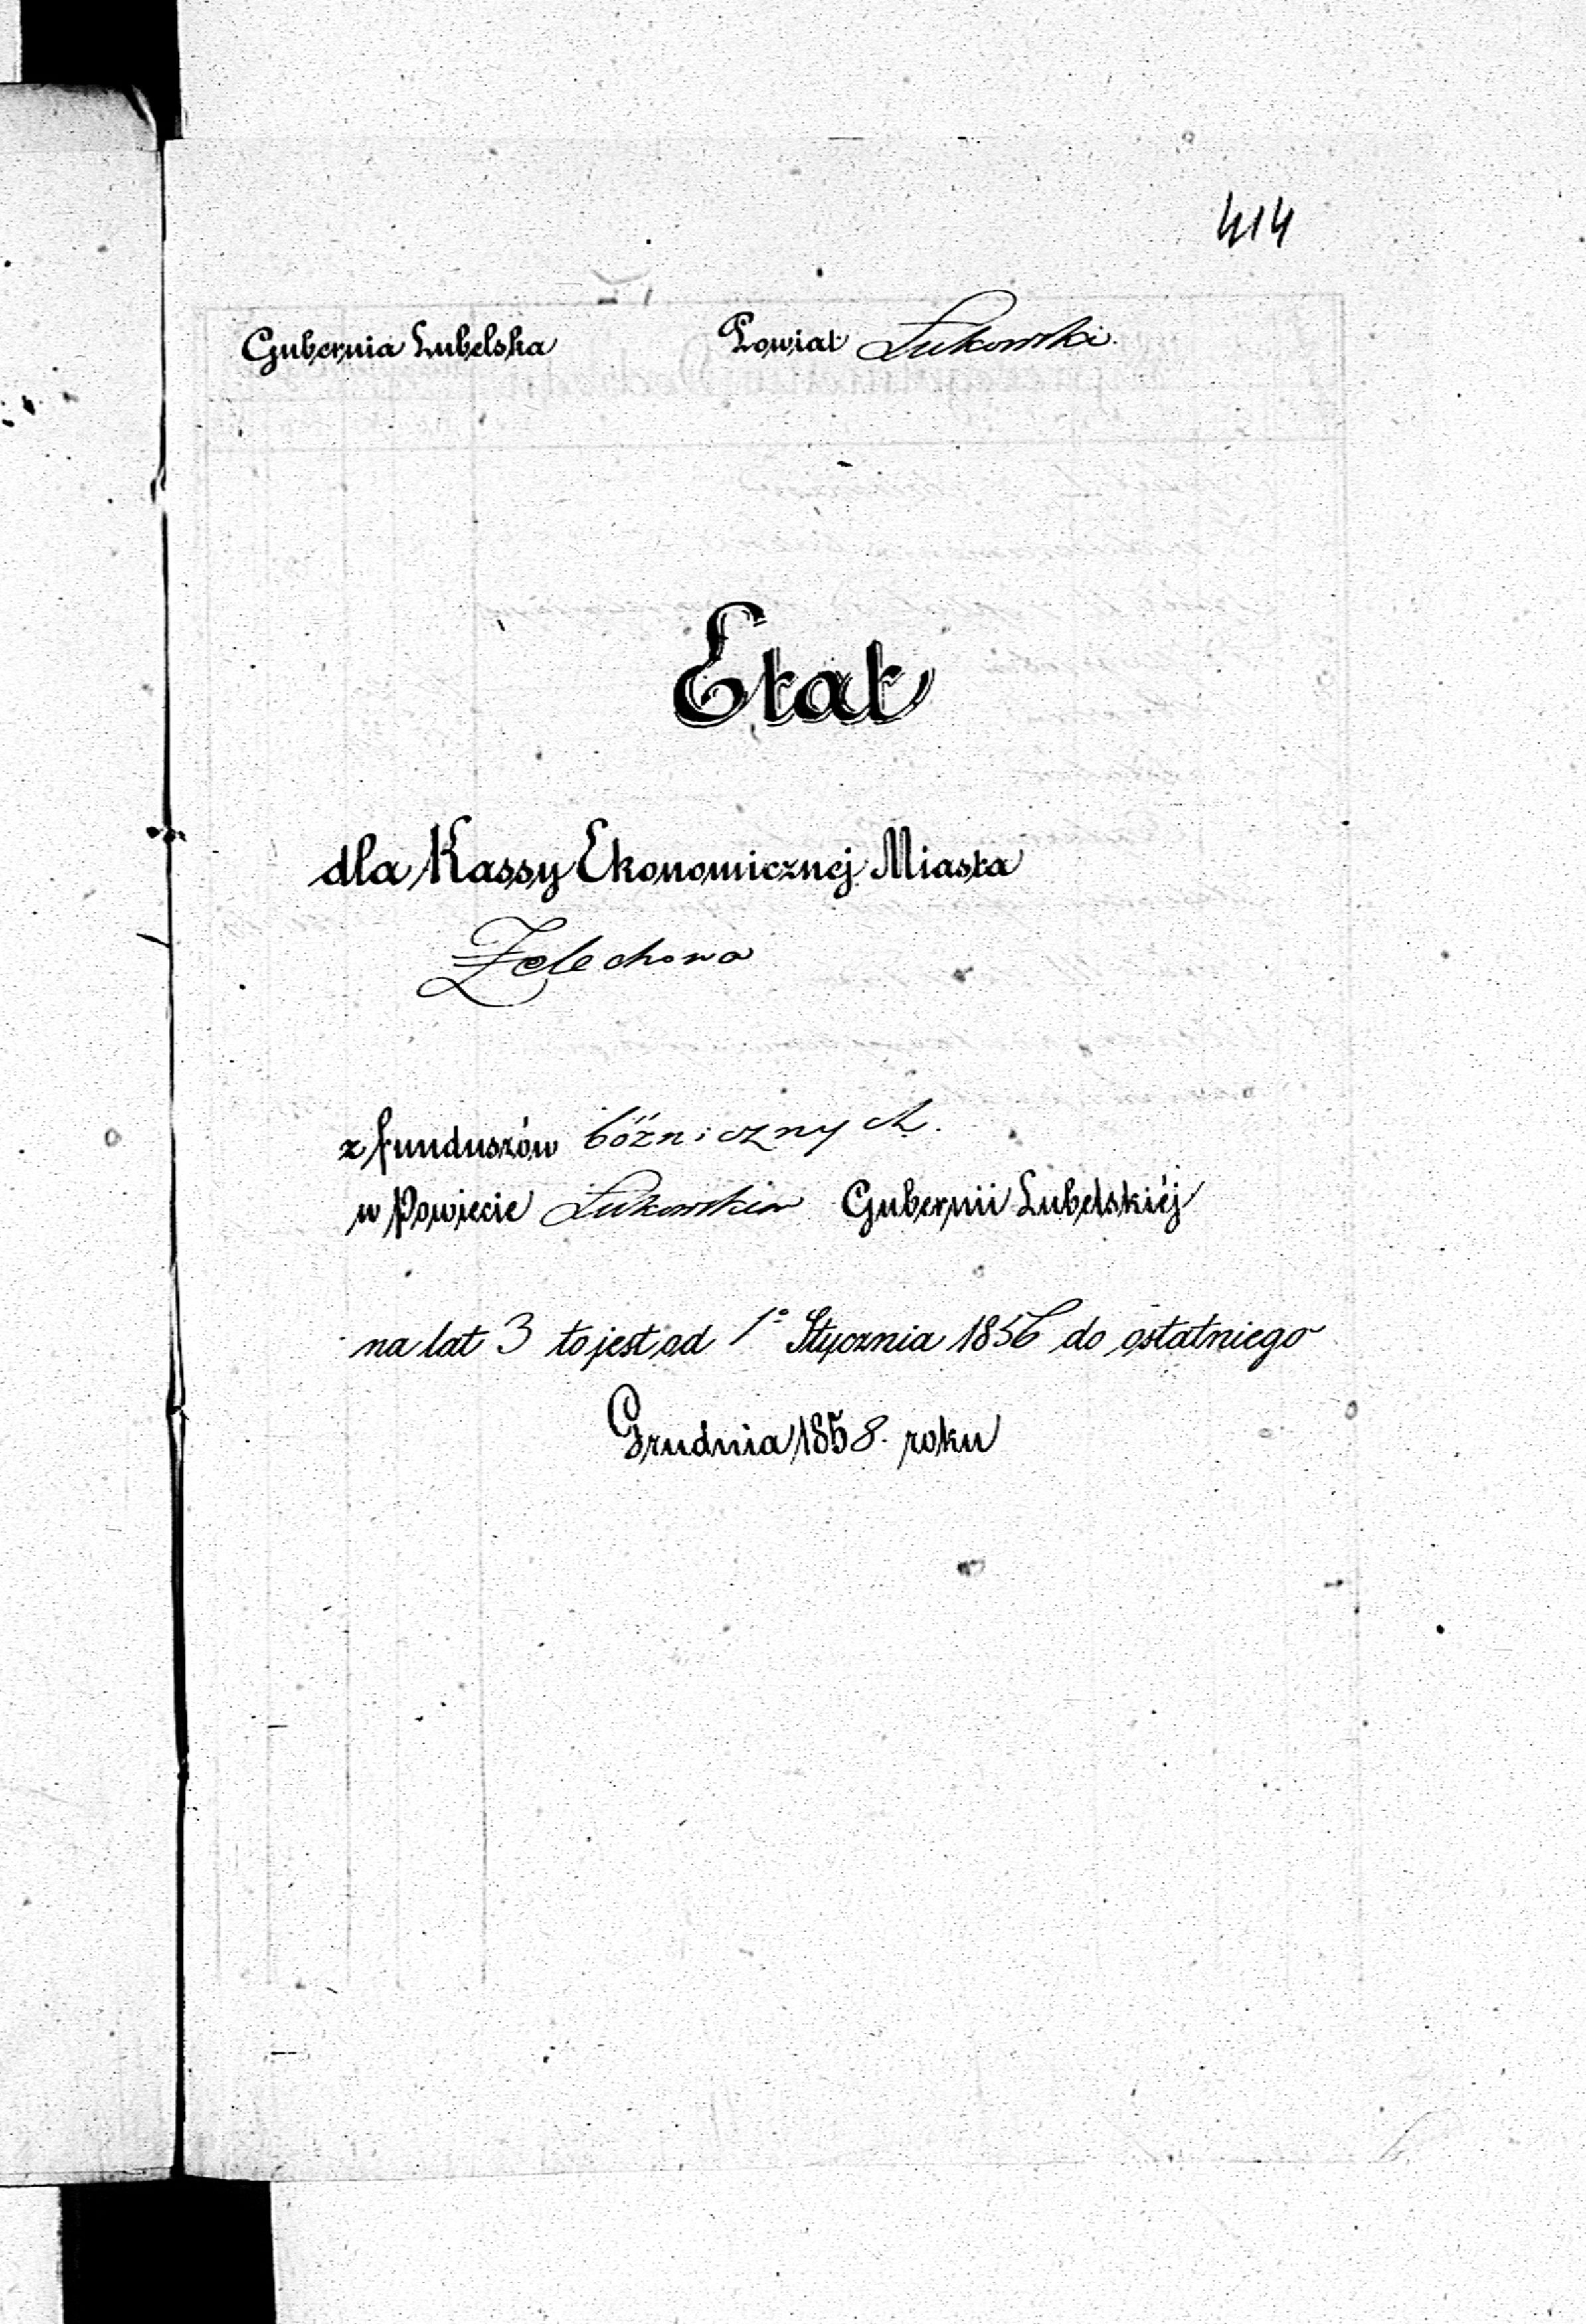 414
Gubernia Lubelska Powiat Łukowski.
Etat
dla Kassy Ekonomicznej Miasta
Żelechowa
z funduszów bóźnicznych.
w Powiecie Łukowskim Gubernii Lubelskiéj
na lat 3 to jest od 1º Stycznia 1856 do ostatniego
Grudnia 1858. roku